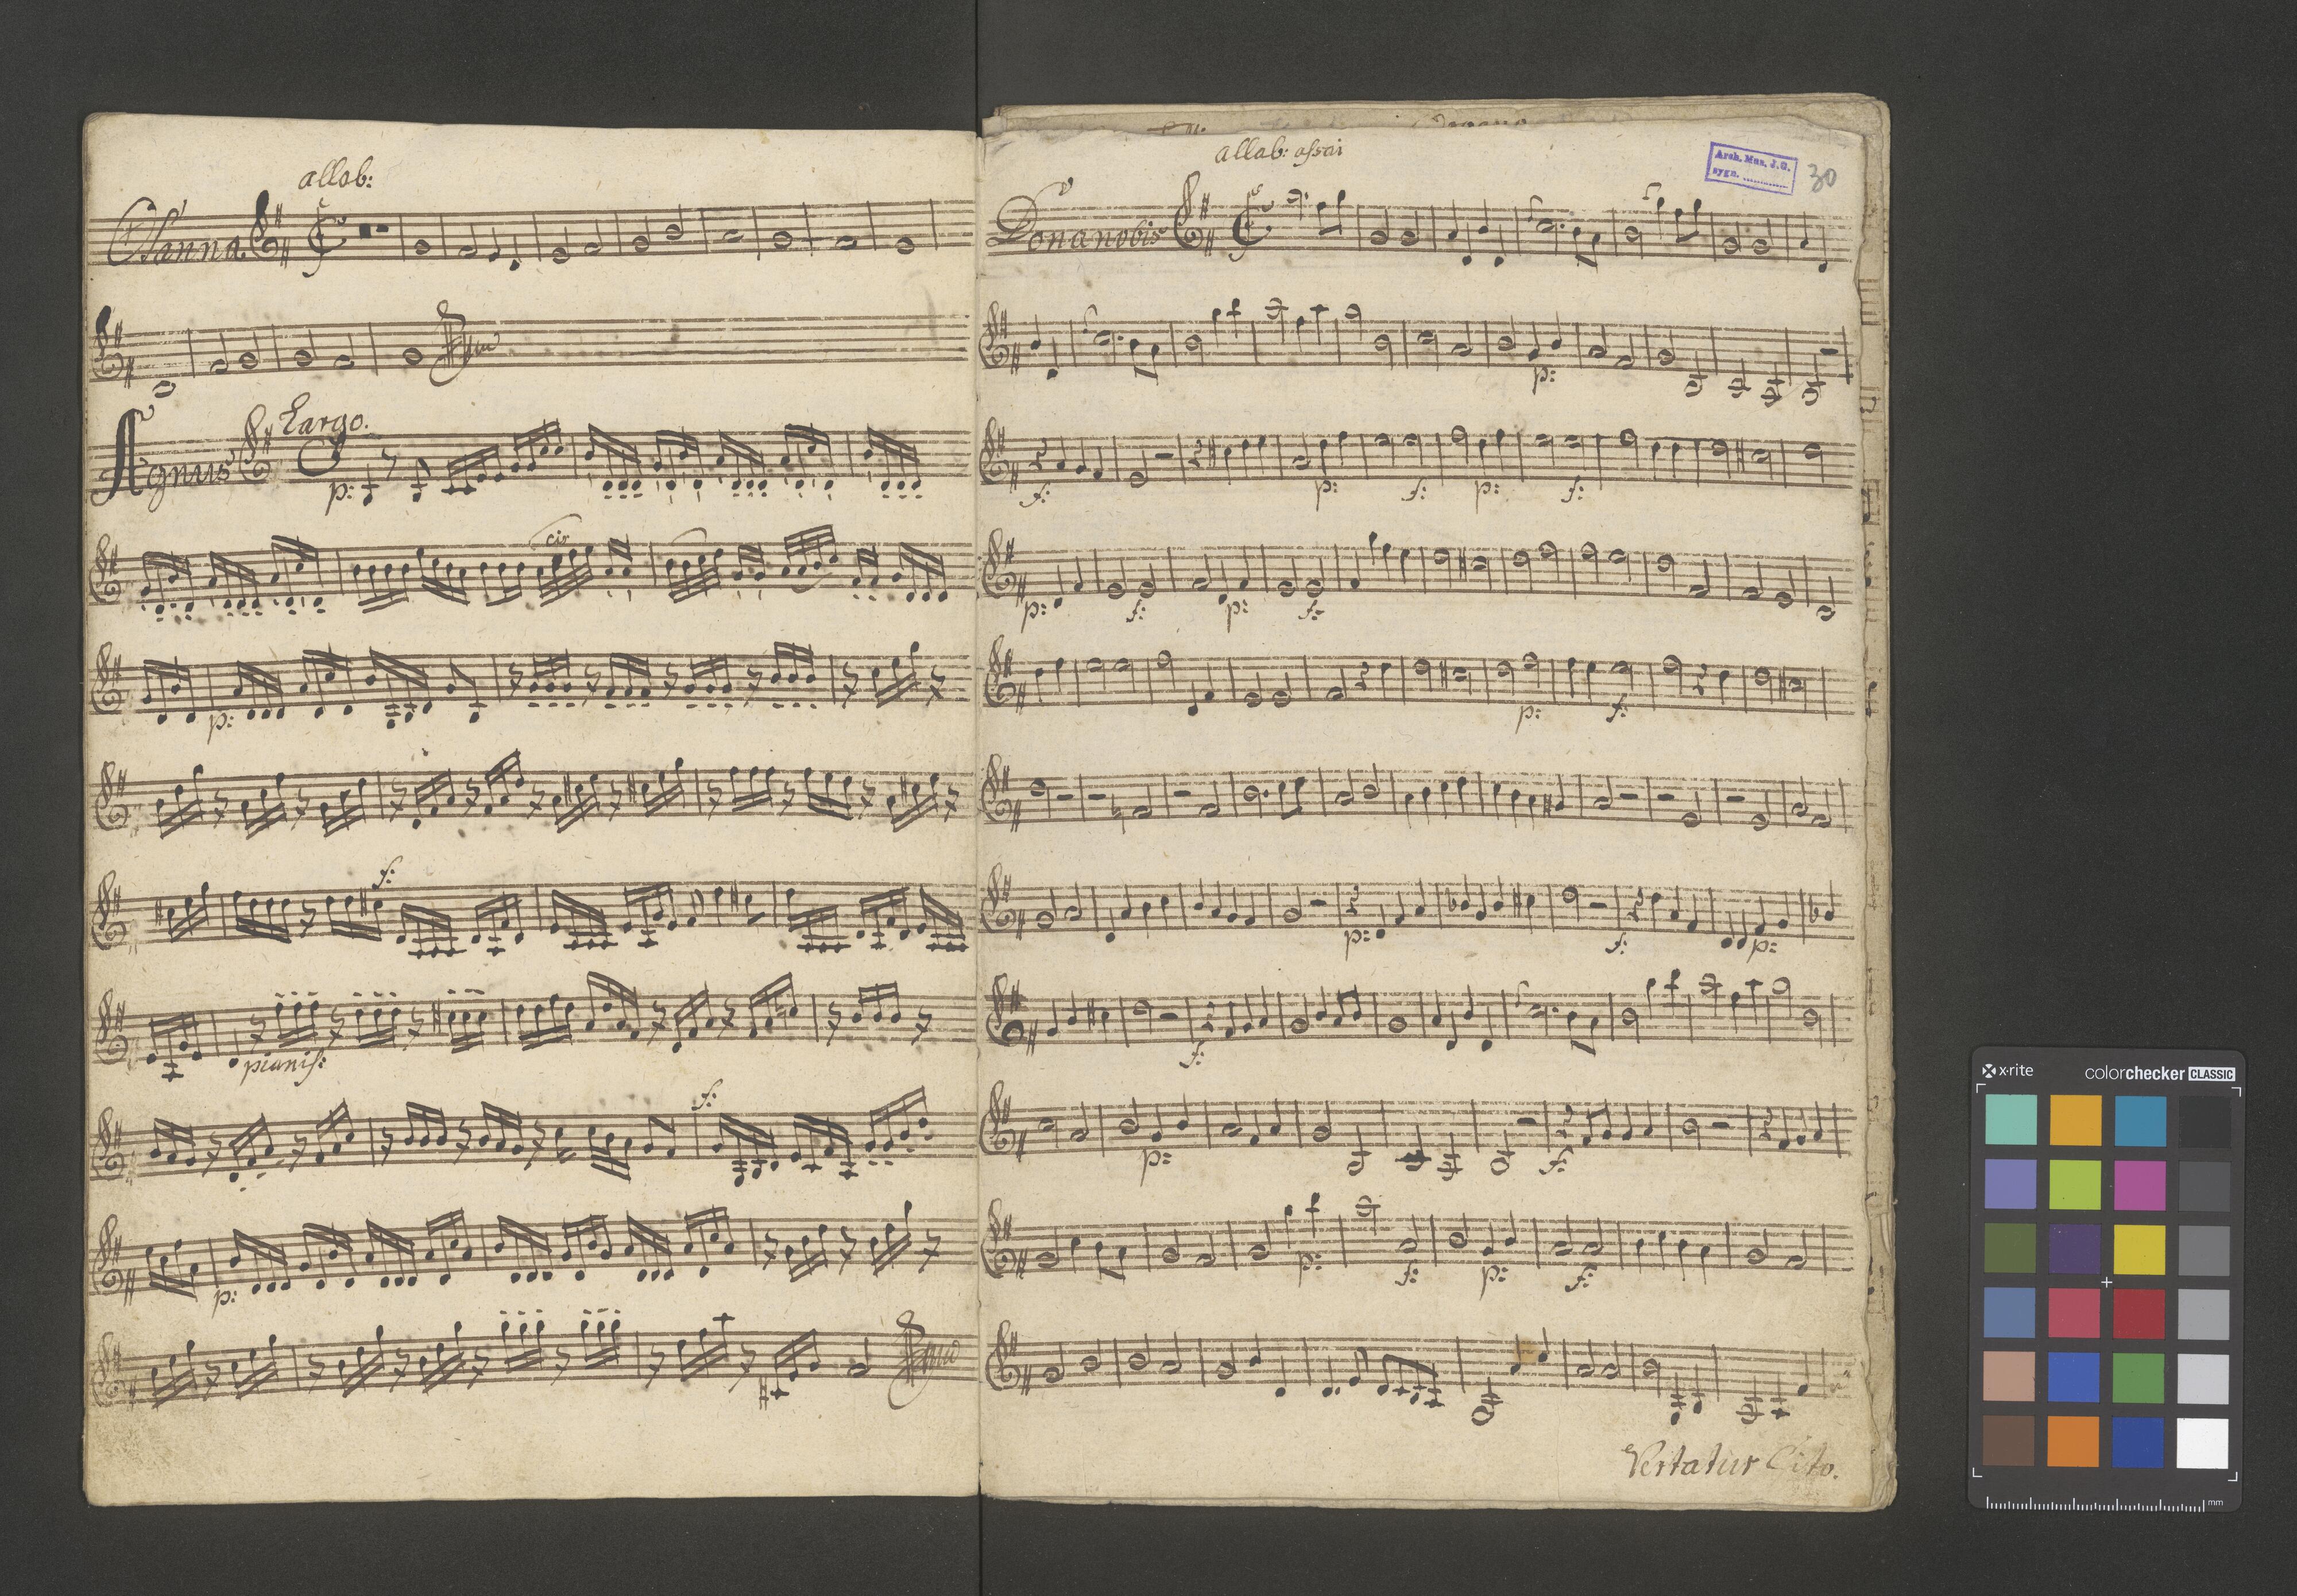 allab:
Osanna.
Largo.
Agnus
p:
cis
p:
f:
pianiss:
f:
p:
allab: assai
Arch. Mus. J.G.
sygn. ..............
30
Dona nobis
p:
f: p: f: p: f:
p: f: p: f:
p: f:
p: f: p:
f:
p: f:
p: f: p: f:
Vertatur Cito.
x-rite colorchecker CLASSIC
mm